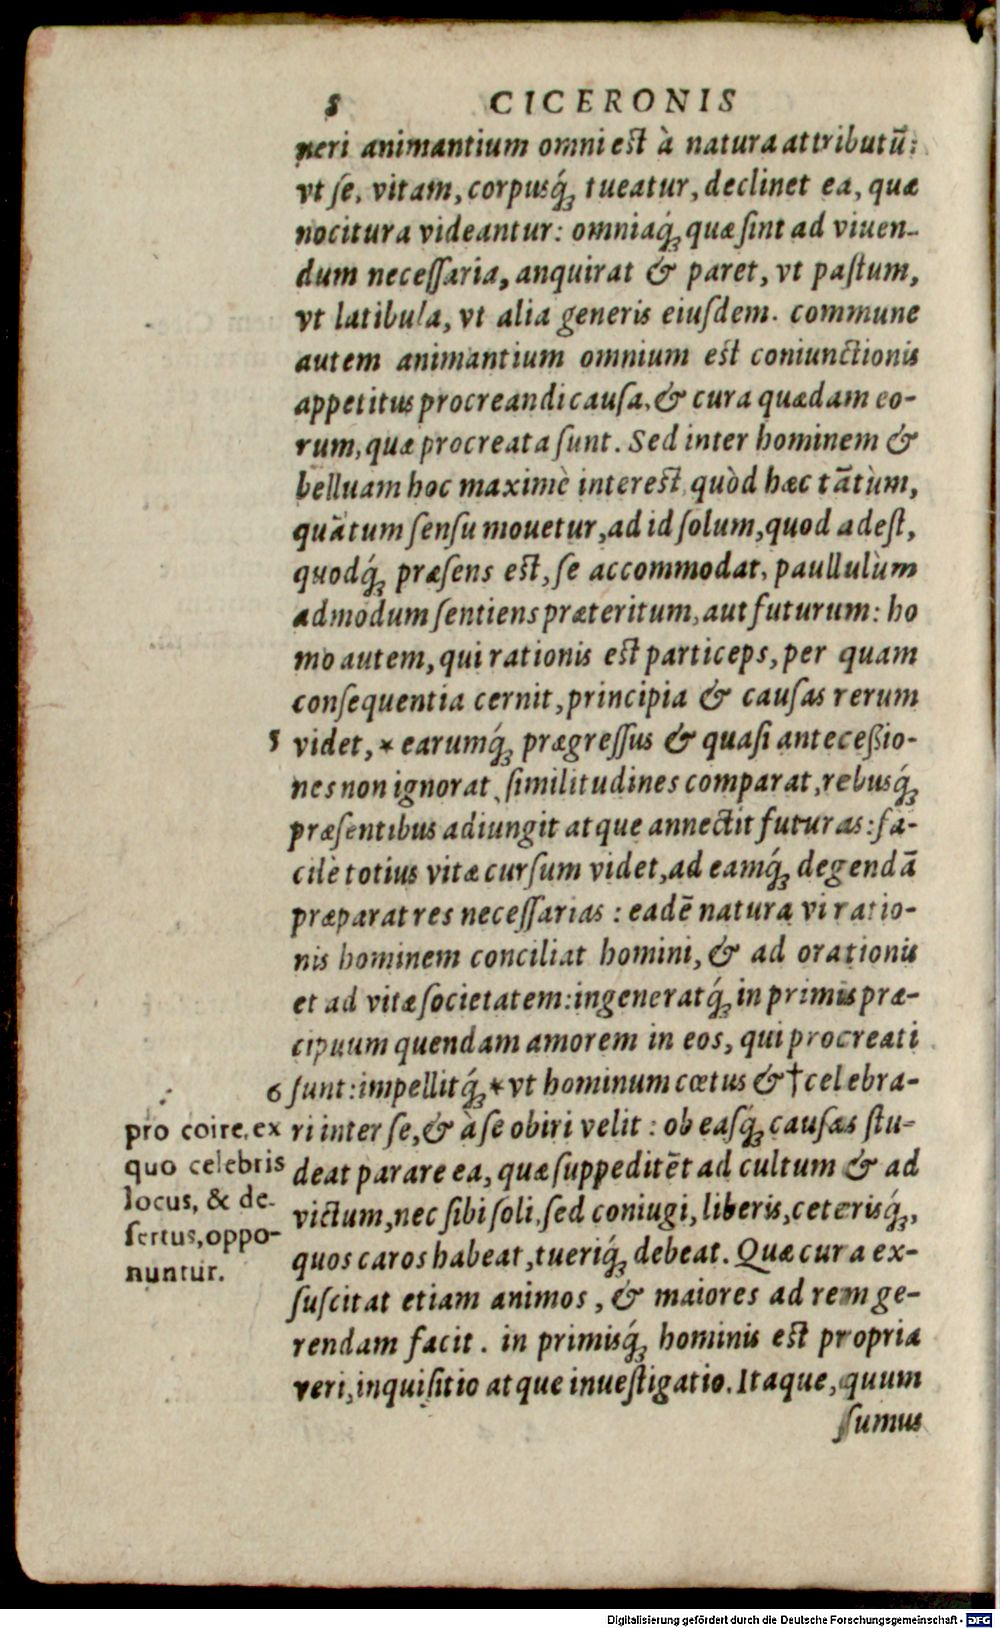 8 CICERONIS
neri animantium omni eſt à natura attributū:
vt ſe, vitam, corpusq́ꝫ tueatur, declinet ea, quæ
nocitura videantur: omniaq́ꝫ quæ ſint ad viuen-
dum neceſſaria, anquirat & paret, vt paſtum,
vt latibula, vt alia generis eiuſdem. commune
autem animantium omnium eſt coniunctionis
appetitus procreandi cauſa, & cura quædam eo-
rum, quæ procreata ſunt. Sed inter hominem &
belluam hoc maximè intereſt, quòd hæc tātùm,
quātum ſenſu mouetur, ad id ſolum, quod adeſt,
quodq́ꝫ præſens eſt, ſe accommodat, paullulùm
admodum ſentiens præteritum, aut futurum: ho
mo autem, qui rationis eſt particeps, per quam
conſequentia cernit, principia & cauſas rerum
5 videt, * earumq́ꝫ prægreſſus & quaſi anteceßio-
nes non ignorat, ſimilitudines comparat, rebusq́ꝫ
præſentibus adiungit atque annectit futuras: fa-
cilè totius vitæ curſum videt, ad eamq́ꝫ degendā
præparat res neceſſarias: eadē natura vi ratio-
nis hominem conciliat homini, & ad orationis
et ad vitæ ſocietatem: ingeneratq́ꝫ in primis præ-
cipuum quendam amorem in eos, qui procreati
6 ſunt: impellitq́ꝫ * vt hominum cœtus & † celebra-
ri inter ſe, & à ſe obiri velit: ob easq́ꝫ cauſas ſtu-
deat parare ea, quæ ſuppeditēt ad cultum & ad
victum, nec ſibi ſoli, ſed coniugi, liberis, ceterisq́ꝫ,
quos caros habeat, tueriq́ꝫ debeat. Quæ cura ex-
ſuſcitat etiam animos, & maiores ad rem ge-
rendam facit. in primisq́ꝫ hominis eſt propria
veri, inquiſitio atque inueſtigatio. Itaque, quum
ſumus
pro coire, ex
quo celebris
locus, & de-
ſertus, oppo-
nuntur.
Digitalisierung gefördert durch die Deutsche Forschungsgemeinschaft - DFG